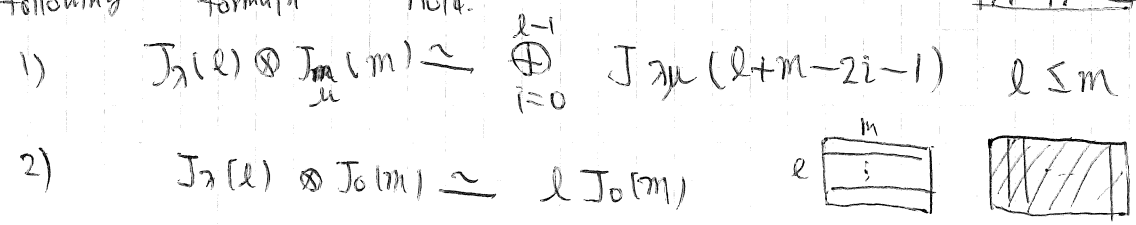 following formula hold.
1) J_λ(l) ⊗ J_μ(m) ≃ ⊕_{i=0}^{l-1} J_{λμ}(l+m-2i-1) l ≤ m
2) J_λ(l) ⊗ J_0(m) ≃ l J_0(m) l m